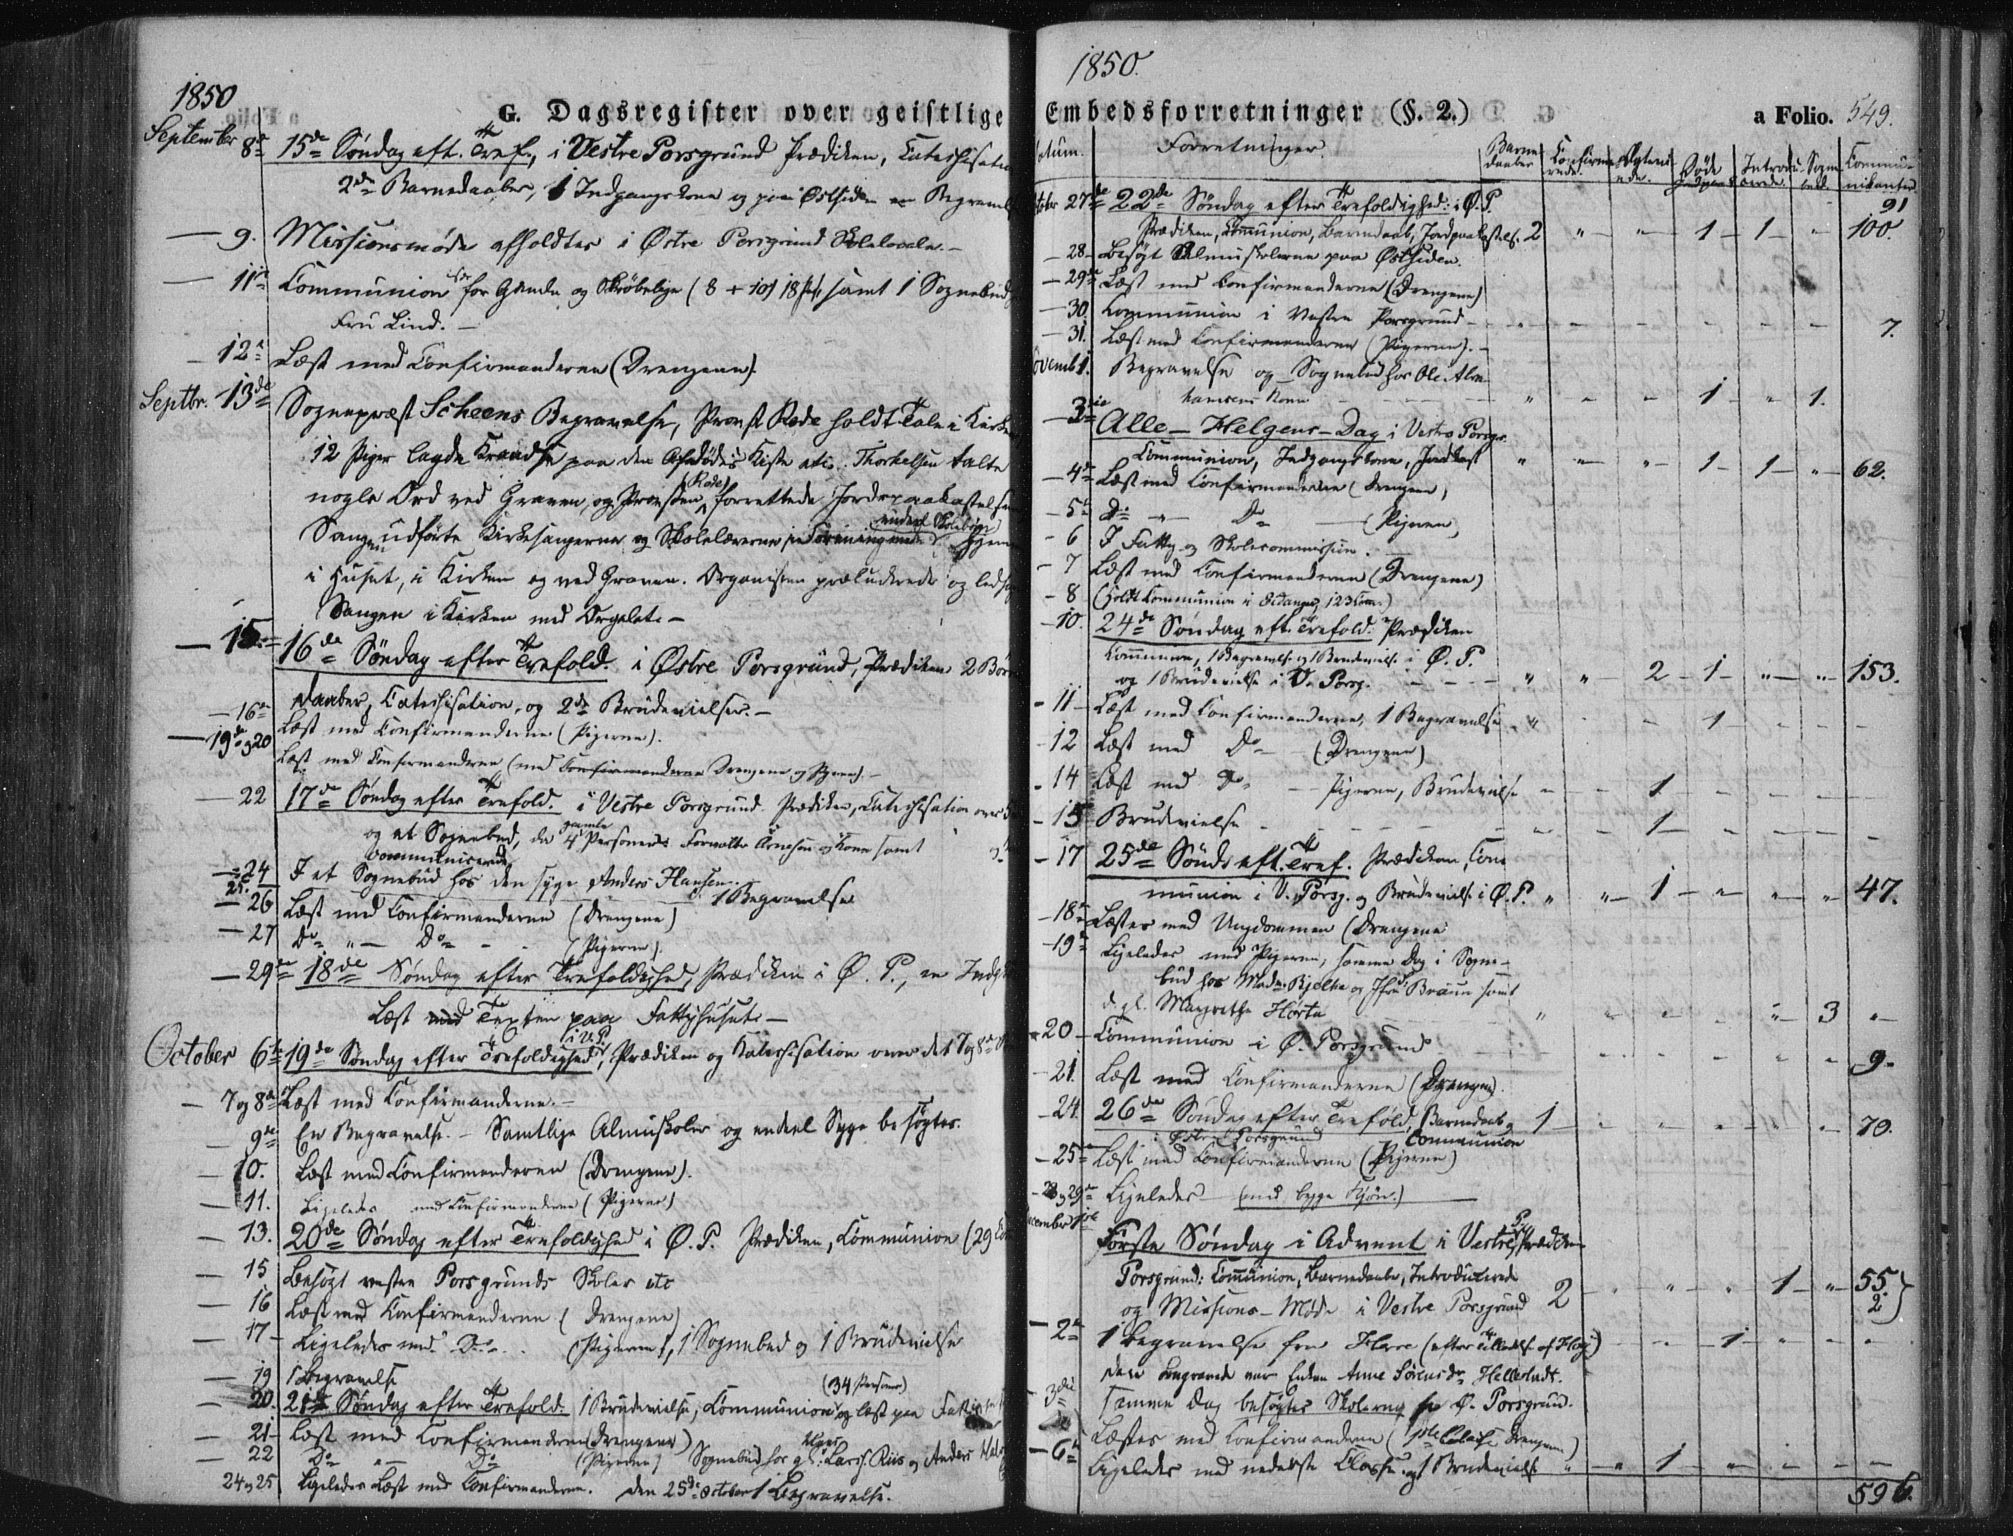 1850
G. Dagsregister over geistlige
September 8de 15de Søndag eft. Tref., i Vestre Porsgrund Prædiken, Catechisation
2de Barnedaaber, 1 Indgangskone og paa Østsiden en Begravelse
— 9. Missionsmøde afholdtes i Østre Porsgrund Skolelocale. —
— 11te Communion for Gamle og Skrøbelige (8 + 10) 18 samt 1 Sognebud
Fru Lind. —
— 12te Læst med Confirmanderne (Drengene).
Septbr. 13de Sognepræst Scheens Begravelse, Provst Rode holdt Tale i Kirken
12 Piger lagde Krandse paa den Afdødes Kiste etc. Thorkelsen talte
nogle Ord ved Graven, og Provsten Rode forrettede Jordpaakastelsen
Sangen udførte Kirkesangerne og Skolelærerne i Forening med endeel Skolebørn hjemme
i Huset, i Kirken og ved Graven. Organisten præluderede og ledsagede
Sangen i Kirken med Orgelet. —
— 15. 16de Søndag efter Trefold. i Østre Porsgrund, Prædiken 2 Børne
daaber, Catechisation, og 2de Brudevielser. —
— 16de Læst med Confirmanderne (Pigerne).
— 19de og 20 Læst med Confirmanderne (med Confirmanderne Drengene og Pigerne). —
— 22 17de Søndag efter Trefold. i Vestre Porsgrund Prædiken, Catechisation over
og et Sognebud, da 4 gamle Personer Forvalter Arnesen og Kone samt
communicerede
— 24 I et Sognebud hos den syge Anders Hansen.
25. 1 Begravelse
— 26 Læst med Confirmanderne (Drengene)
— 27 Do " — Do - - (Pigerne).
— 29de 18de Søndag efter Trefoldighed, Prædiken i Ø. P., en Indg
Læst med Texten paa Fattighuset. —
October 6te 19de Søndag efter Trefoldighed i V. P., Prædiken og Katechisation over det 7 og 8de
— 7 og 8de Læst med Confirmanderne. —
— 9de En Begravelse. — Samtlige Almueskoler og endeel Syge besøgtes.
— 10. Læst med Confirmanderne (Drengene).
— 11. Ligeledes med Confirmanderne (Pigerne)
— 13. 20de Søndag efter Trefoldighed i Ø. P. Prædiken, Communion (29
— 15 Besøgt vestre Porsgrunds Skoler etc
— 16 Læst med Confirmanderne (Drengene)
— 17 — Ligeledes med Do. . . (Pigerne), 1 Sognebud og 1 Brudevielse
— 19 1 Begravelse
— 20. 21de Søndag efter Trefold. 1 Brudevielse, Communion (34 Personer) og læst paa
— 21 — Læst med Confirmanderne (Drengene)
— 22 Do " — Do (Pigerne) Sognebud hos Lars Riis og Anders
24 og 25 Ligeledes Læst med Confirmanderne. den 25de October 1 Begravelse.
1850.
Embedsforretninger (§. 2.) a Folio. 549.
Datum. Forretninger. Barnedaaber Confirmerede. Ægteviede. Døde Introducerede. Sognebud. Communikanter
October 27de 22de Søndag efter Trefoldighed: i Ø. P. 91
Prædiken, Communion, Barnedaab, Jordpaakastels. 2 " " 1 1 " 100.
— 28 — Besøgt Almueskolerne paa Østsiden.
— 29de Læst med Confirmanderne (Drengene)
— 30. Communion i Vestre Porsgrund — 7.
— 31. Læst med Confirmanderne (Pigerne). —
Novemb 1. Begravelse og Sognebud hos Ole Abra
hamsens Kone " - - 1 " 1.
— 3die Alle — Helgens — Dag i Vestre Porsgr.
Communion, Indgangskone, Jordkast " — " 1 — 1 — " 62.
— 4de Læst med Confirmanderne (Drengene)
— 5te Do " — Do — (Pigerne)
— 6 I Fattig og Skolecommission.
— 7 Læst med Confirmanderne (Drengene)
— 8 (Holdt Communion i Eidanger, 123 Com.)
— 10. 24de Søndag eft. Trefold. Prædiken
Communion, 1 Begravels. og 1 Brudevielse i Ø. P.
og 1 Brudevielse i V. Porsg. " " 2 — 1 — " — " — 153.
— 11 — Læst med Confirmanderne, 1 Begravelse " - - 1 - - -
— 12 Læst med Do — (Drengene)
— 14 Læst med Do — Pigerne, Brudevielse — — 1 — — — —
— 15 Brudevielse — — 1 — — — —
— 17 25de Sønd. eft. Tref. Prædiken, Com
munion i V. Porsg. og Brudevielse i Ø. P. " " 1 — " " " 47.
— 18de Læstes med Ungdommen (Drengene
— 19de Ligeledes med Pigerne, samme Dag i Sogne-
bud hos Madm. Bjelke og Jfru Braun samt
d. gl. Margrethe Horta " - - - " 3 "
— 20 — Communion i Ø. Porsgrund 9.
— 21. Læst med Confirmanderne (Drengene).
— 24. 26de Søndag efter Trefold, Barnedaab og 1 — — — — — 70.
i Østre Porsgrund Communion
— 25de Læst med Confirmanderne (Pigerne)
— 28 og 29de Ligeledes — (med begge Kjøn.) —
December 1ste Første Søndag i Advent i Vestre Prædiken
Porsgrund: Communion, Barnedaab, Introducerede
og Missions — Møde i Vestre Porsgrund 2 - " " 1 — " 55. 2 }
— 2de 1 Begravelse fra Herre (efter Tilladelse af
dens begravede var Enken Anne Sørensdr. Hellestvedt.
— 3die samme Dag besøgtes Skolerne paa Ø. Porsgrund.
Læstes med Confirmanderne (1ste Classe Drengene)
— 6te Ligeledes med nederste Classe. og 1 Brudevielse " — " 1 — — — —
596.